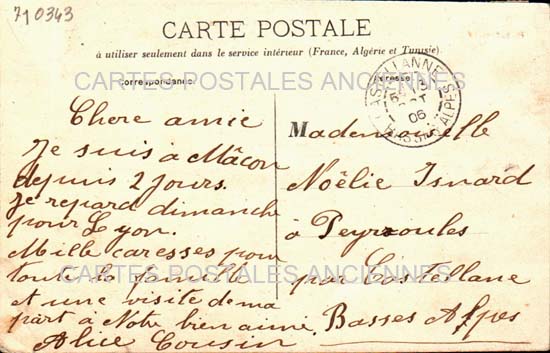 710343
CARTE POSTALE
à utiliser seulement dans le service intérieur (France, Algérie et Tunisie).
CARTES POSTALES ANCIENNES
Correspondance
Adresse
CASTELLANNE
OCT
06
BASSES ALPES
Chere amie
Je suis à Mâcon
depuis 2 jours.
Je repard dimanche
pour Lyon.
Mille caresses pour
toute la famille
et une visite de ma
part à Notre bien aimé.
Alice Cousin
Mademoiselle
Noëlie Isnard
à Peyroules
par Castellane
Basses Alpes
CARTES POSTALES ANCIENNES